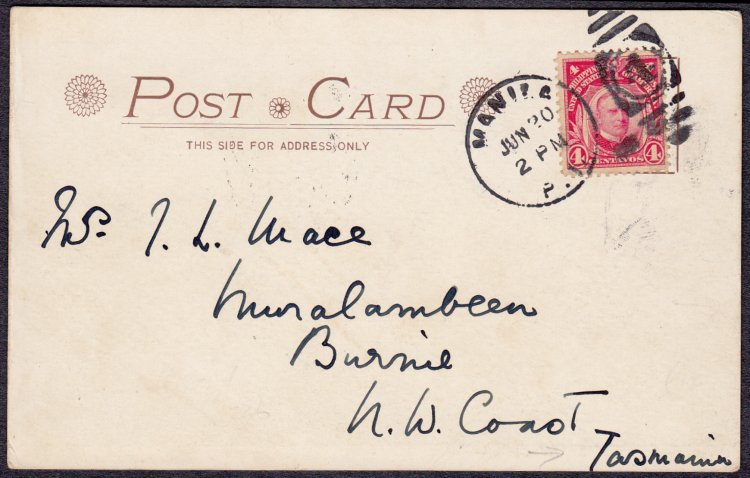 POST CARD
THIS SIDE FOR ADDRESS ONLY
MANILA
JUN 20
2 PM
P.
4 4
UNITED STATES
4 CENTAVOS 4
Mrs. T. L. Mace
Muralambeen
Burnie
N. W. Coast
Tasmania